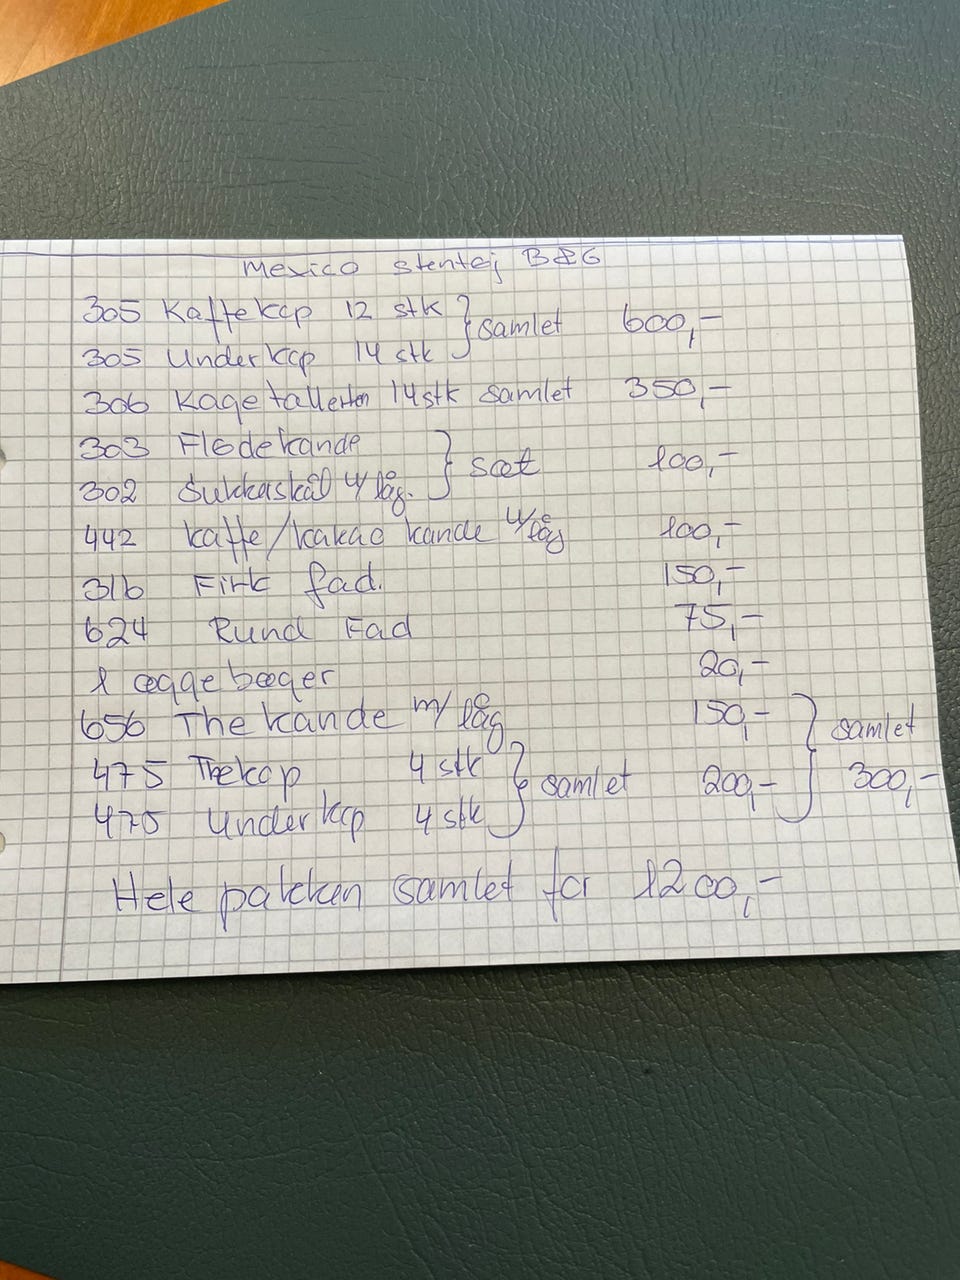 Mexico stentøj B&G
305 Kaffekop 12 stk } samlet 600,-
305 Underkop 14 stk
306 Kagetallerken 14 stk samlet 350,-
303 Flødekande } sæt 100,-
302 Sukkerskål u/låg.
442 kaffe/kakao kande u/låg 100,-
316 Firk fad. 150,-
624 Rund Fad 75,-
1 æggebæger 20,-
656 The kande m/ låg 150,- } samlet 300,-
475 Thekop 4 stk } samlet 200,-
475 Underkop 4 stk
Hele pakken samlet for 1200,-